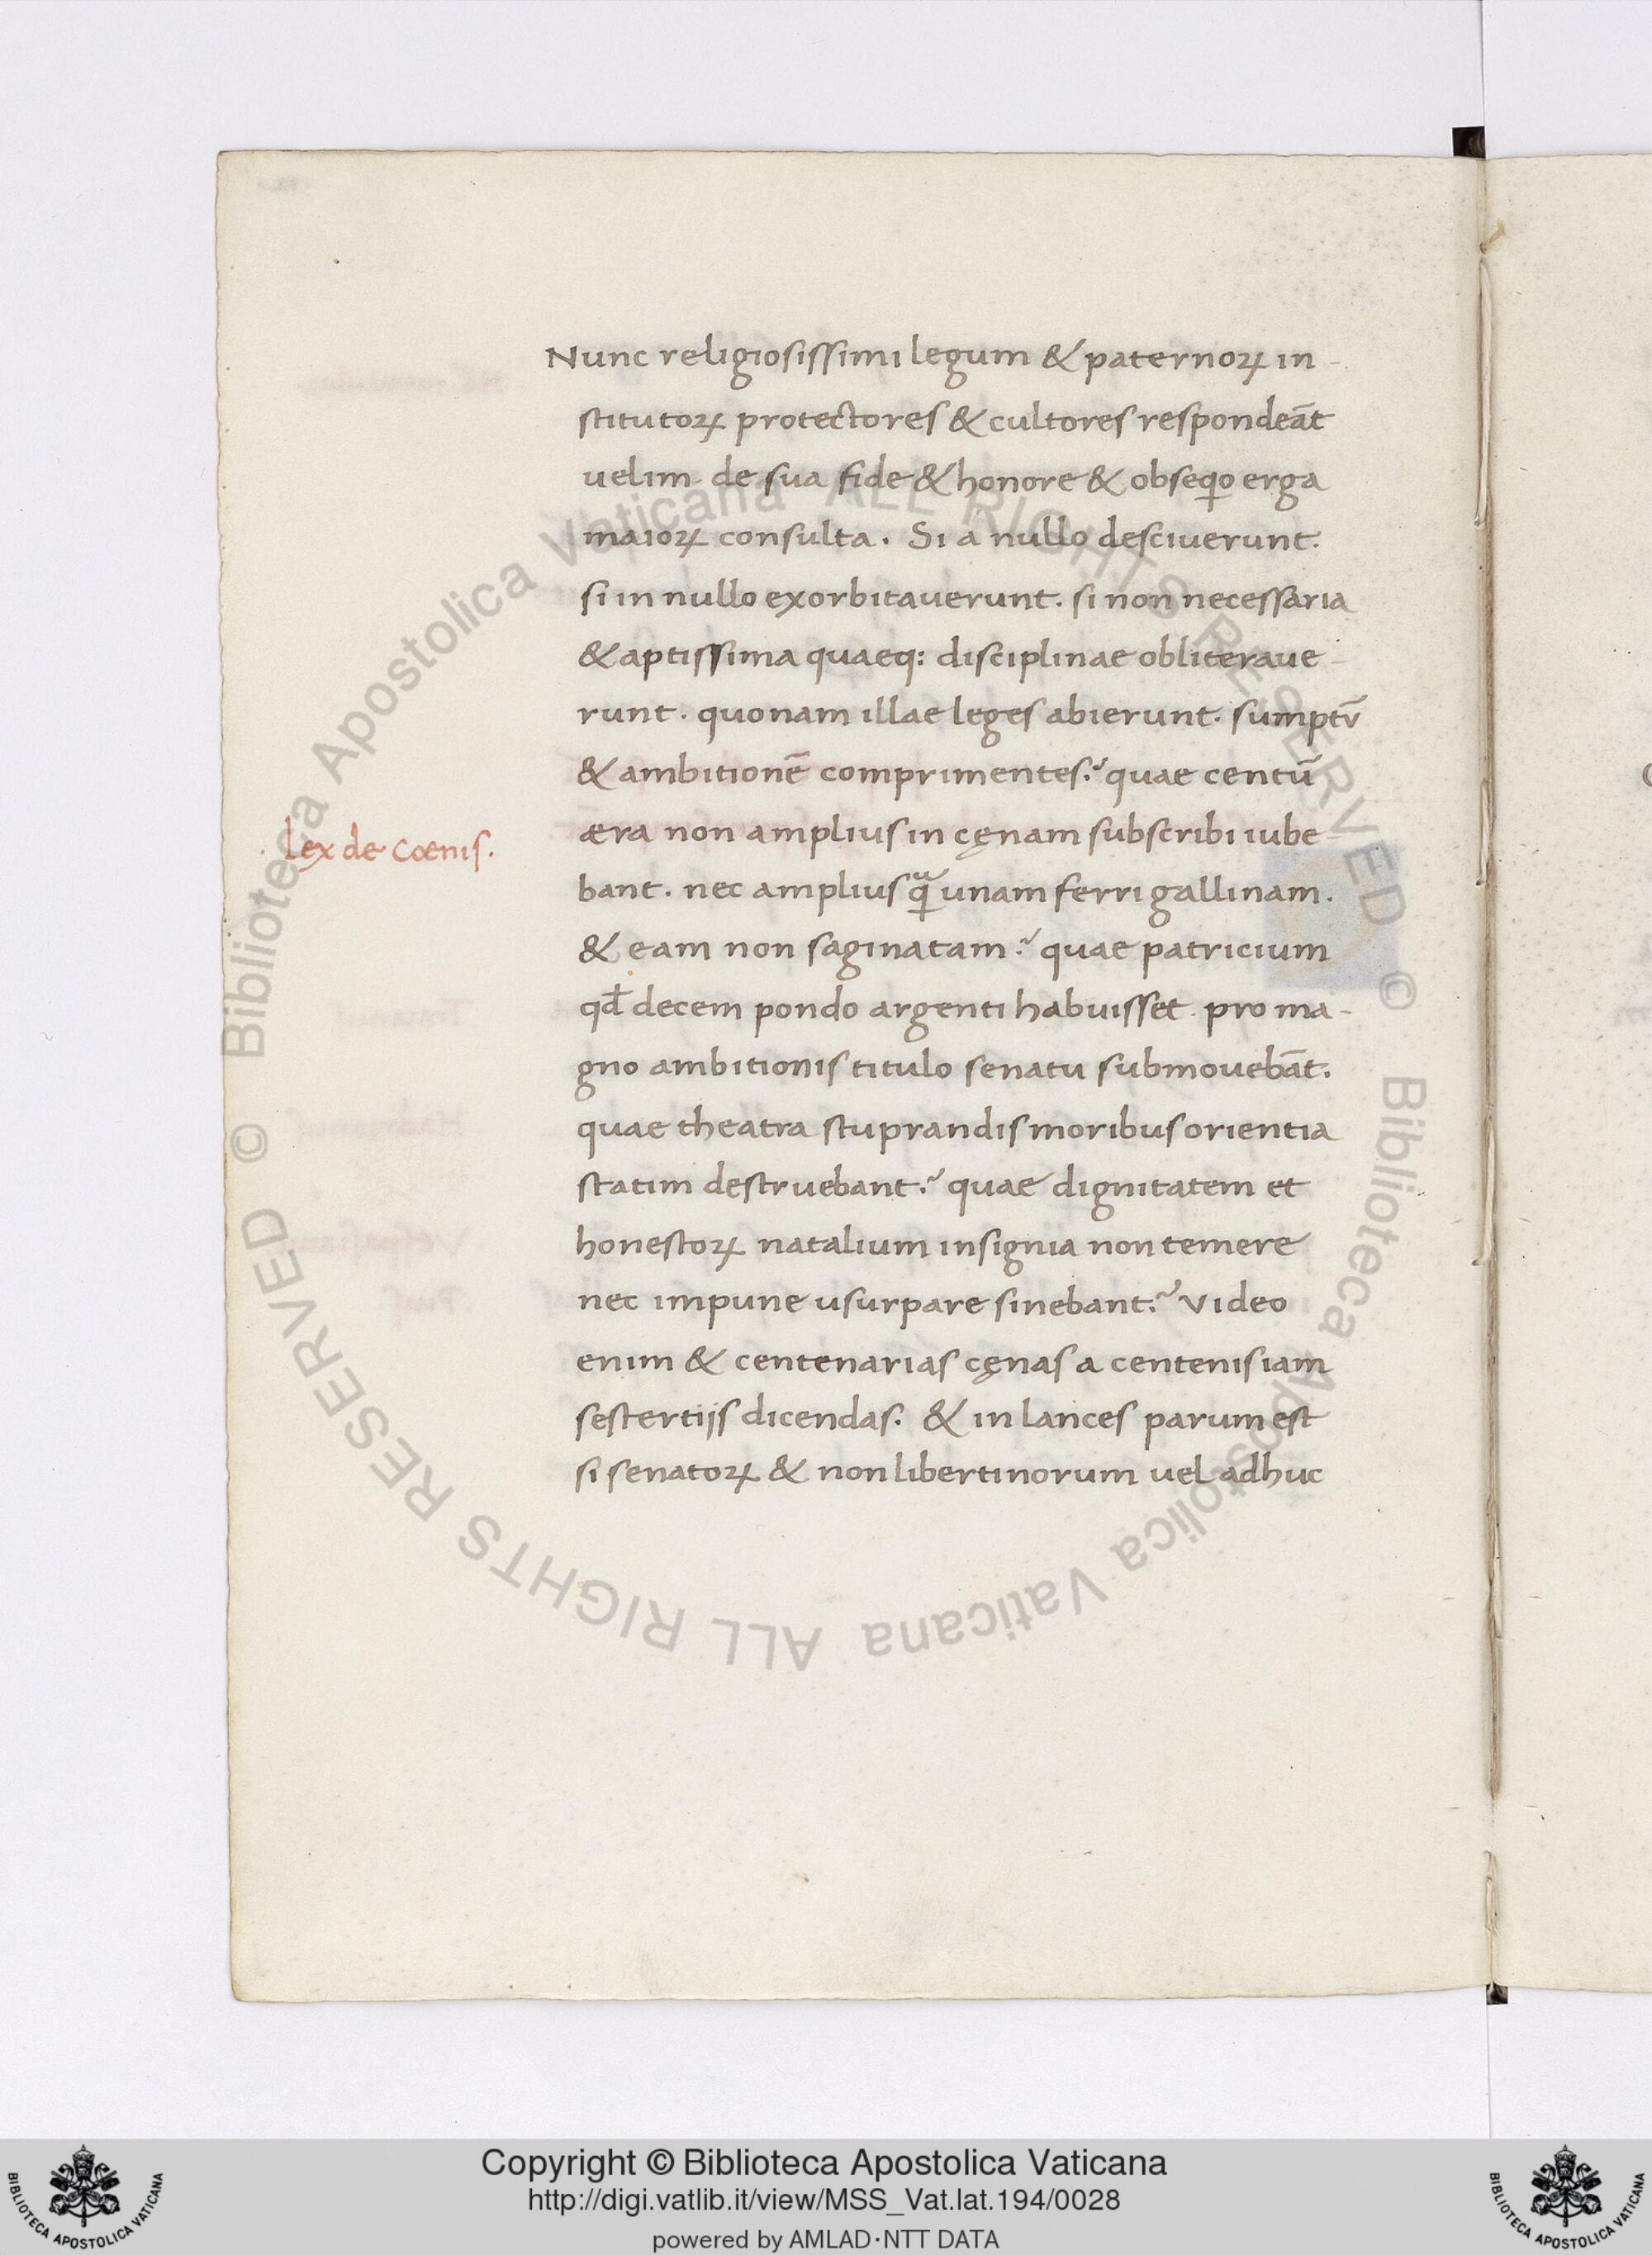 Nunc religiosissimi legum & paternoꝝ in-
stitutoꝝ protectores & cultores respondeāt
uelim de sua fide & honore & obseqio erga
maioꝝ consulta. Si a nullo desciuerunt.
si in nullo exorbitauerunt. si non necessaria
& aptissima quaeq: disciplinae obliteraue-
runt. quonam illae leges abierunt. sumptū
& ambitionē comprimentes.? quae centū
æra non amplius in cęnam subscribi iube-
lex de cœnis.
bant. nec amplius qᷓ unam ferri gallinam.
& eam non saginatam? quae patricium
qđ decem pondo argenti habuisset. pro ma-
gno ambitionis titulo senatu submouebāt.
quae theatra stuprandis moribus orientia
statim destruebant.? quae dignitatem et
honestoꝝ natalium insignia non temere
nec impune usurpare sinebant.? Video
enim & centenarias cęnas a centenis iam
sestertijs dicendas. & in lances parum est
si senatoꝝ & non libertinorum uel adhuc
© Biblioteca Apostolica Vaticana ALL RIGHTS RESERVED
© Biblioteca Apostolica Vaticana ALL RIGHTS RESERVED
BIBLIOTECA APOSTOLICA VATICANA
Copyright © Biblioteca Apostolica Vaticana
http://digi.vatlib.it/view/MSS_Vat.lat.194/0028
powered by AMLAD·NTT DATA
BIBLIOTECA APOSTOLICA VATICANA